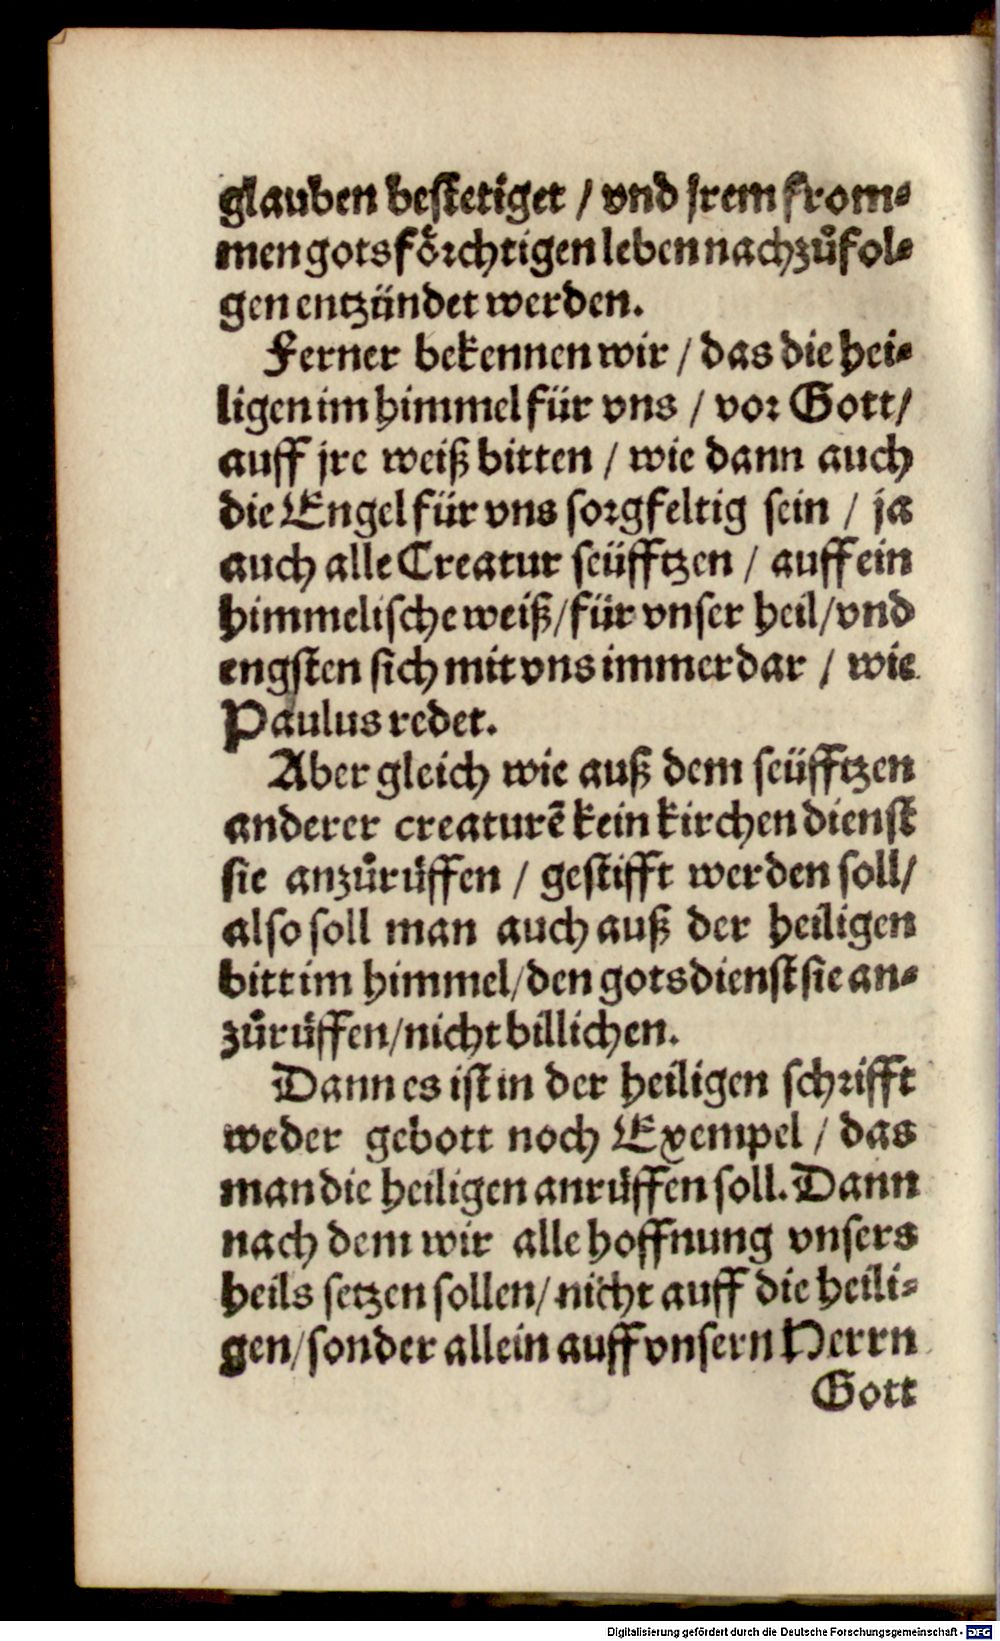 glauben bestetiget / vnd jrem from-
men gotsförchtigen leben nachzůfol-
gen entzündet werden.
Ferner bekennen wir / das die hei-
ligen im himmel für vns / vor Gott /
auff jre weiß bitten / wie dann auch
die Engel für vns sorgfeltig sein / ja
auch alle Creatur seüfftzen / auff ein
himmelische weiß / für vnser heil / vnd
engsten sich mit vns immerdar / wie
Paulus redet.
Aber gleich wie auß dem seüfftzen
anderer creaturē kein kirchen dienst
sie anzůrüffen / gestifft werden soll /
also soll man auch auß der heiligen
bitt im himmel / den gotsdienst sie an-
zůrüffen / nicht billichen.
Dann es ist in der heiligen schrifft
weder gebott noch Exempel / das
man die heiligen anrüffen soll. Dann
nach dem wir alle hoffnung vnsers
heils setzen sollen / nicht auff die heili-
gen / sonder allein auff vnsern Herrn
Gott
Digitalisierung gefördert durch die Deutsche Forschungsgemeinschaft - DFG